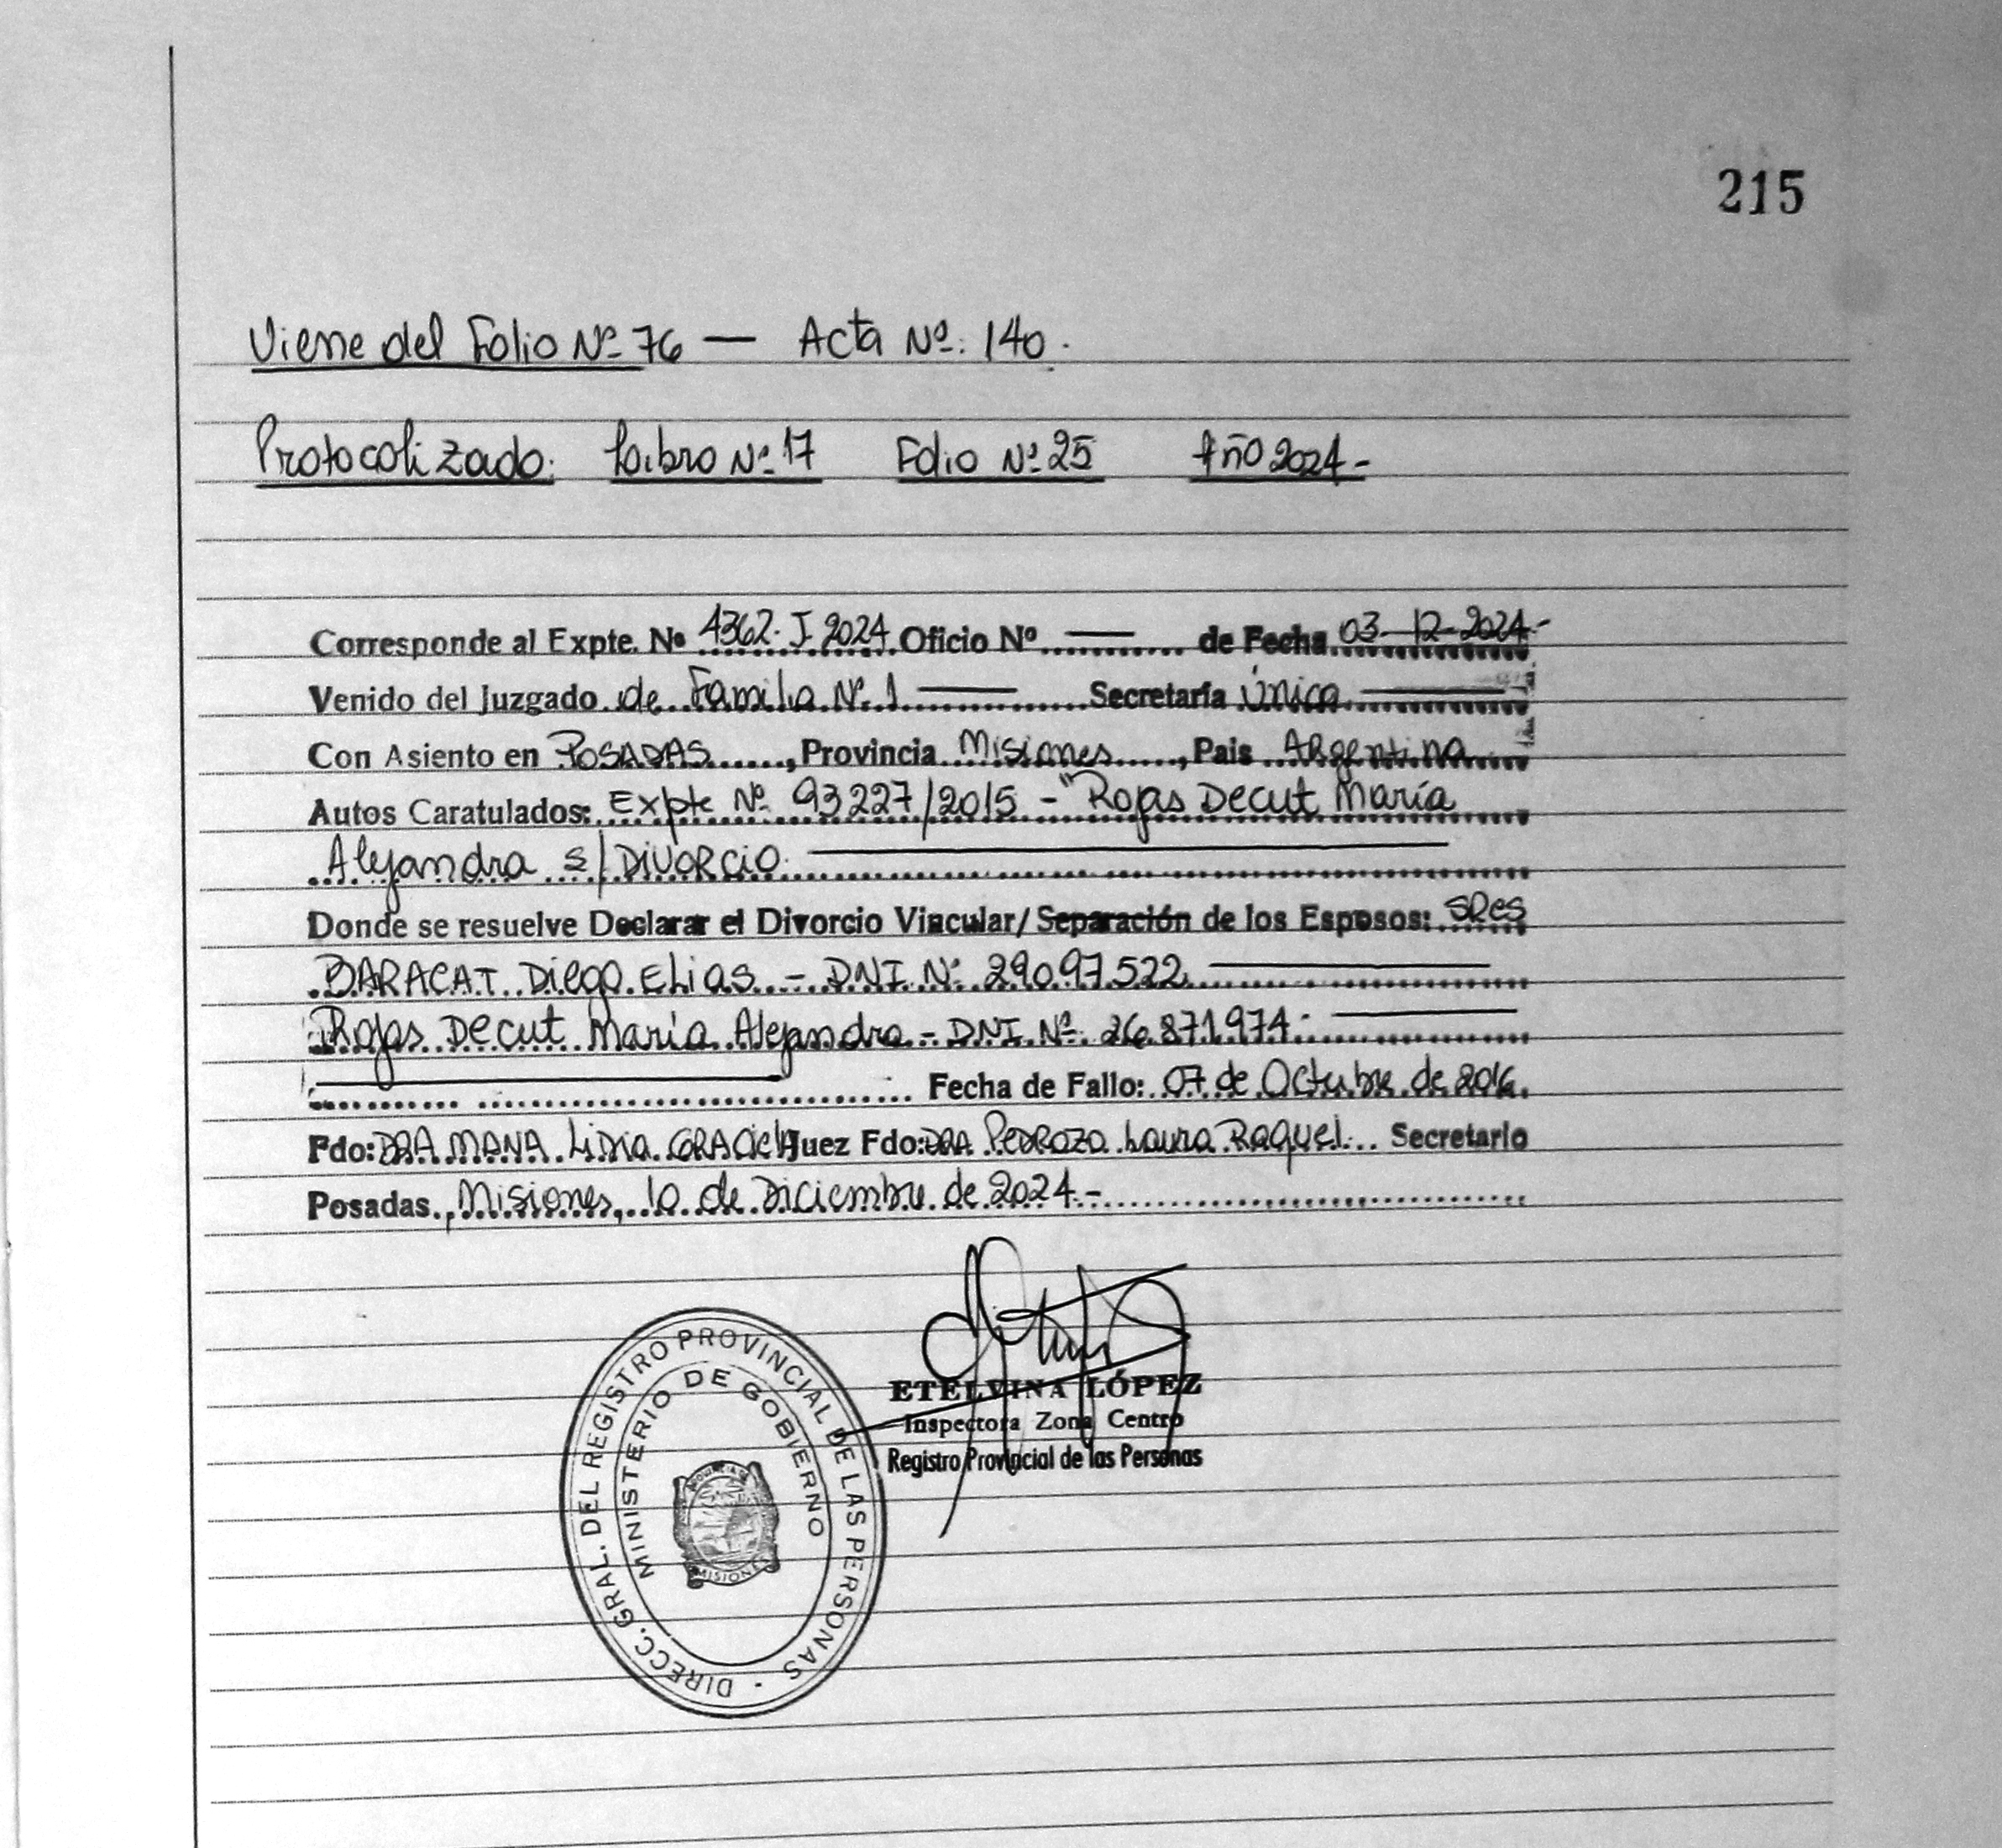 215
Viene del Folio Nº 76 — Acta Nº: 140.
Protocolizado: Libro Nº 17 Folio Nº 25 Año 2024-
Corresponde al Expte. Nº 4362-J-2024 Oficio Nº — de Fecha 03-12-2024-
Venido del Juzgado de Familia Nº 1 — Secretaría Única —
Con Asiento en POSADAS, Provincia Misiones, Pais Argentina
Autos Caratulados: Expte Nº 93227/2015 - "Rojas Decut María
Alejandra s/ DIVORCIO. —
Donde se resuelve Declarar el Divorcio Vincular/ Separación de los Esposos: SRes
BARACAT Diego Elias - DNI Nº 29.097.522 —
Rojas Decut María Alejandra - DNI Nº 26.871.974. —
— Fecha de Fallo: 07 de Octubre de 2016.
Fdo: DRA MANA Lidia GRAciela Juez Fdo: DRA PEDROZO Laura Raquel Secretario
Posadas, Misiones, 10 de Diciembre de 2024.-
ETELVINA LÓPEZ
Inspectora Zona Centro
Registro Provincial de las Personas
DIRECC. GRAL. DEL REGISTRO PROVINCIAL DE LAS PERSONAS
MINISTERIO DE GOBIERNO
MISIONES